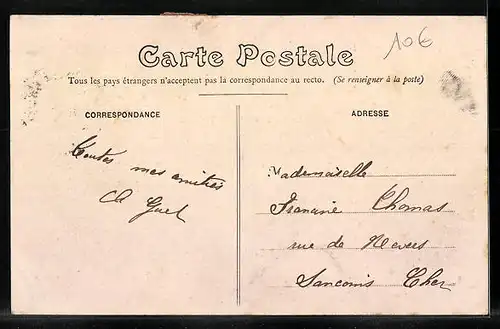 10€
Carte Postale
Tous les pays étrangers n'acceptent pas la correspondance au recto. (Se renseigner à la poste)
CORRESPONDANCE
ADRESSE
Toutes mes amitiés
Mademoiselle
Thomas
rue de Nevers
Sancoins Cher